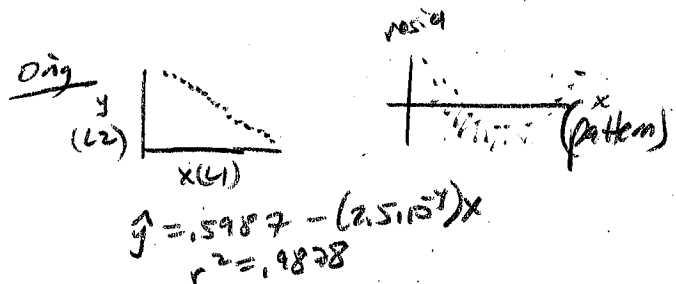 Orig
y
(L2)
x(L1)
resid
x
(pattern)
ŷ = .5987 - (2.5.10⁻⁴)x
r² = .9878